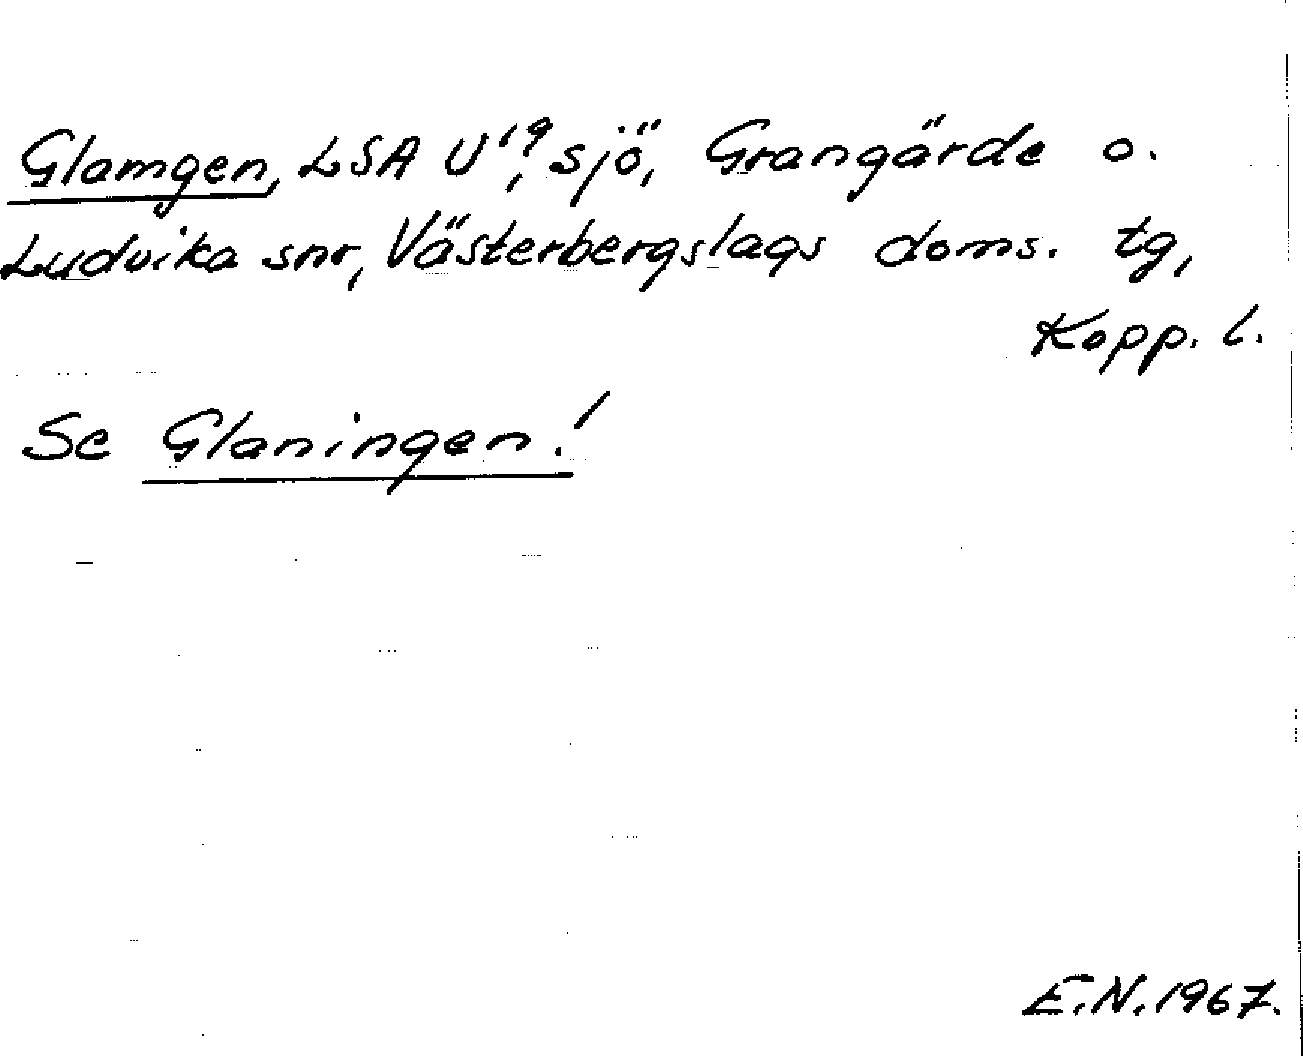 Glamgen, LSA U¹⁹, sjö, Grangärde o.
Ludvika snr, Västerbergslags doms. tg,
Kopp. l.
Se Glaningen!
E.N. 1967.